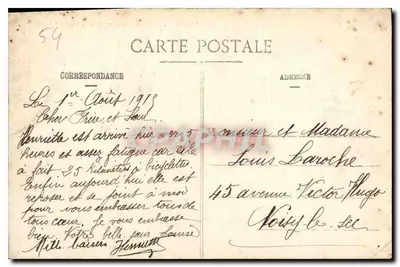 54
CARTE POSTALE
CORRESPONDANCE
ADRESSE
Le 1er Août 1915
Cher Frère et
Henriette est arrivé hier a 5
heures et assez fatigué car elle
à fait 25 kilomètres à bicyclettes
Enfin aujourd'hui elle est
reposer et se joint à moi
pour vous embrasser tous de
tous cœur. Je vous embrasse
bien Votre belle sœur
Mille baisers Henriette
Monsieur et Madame
Louis Laroche
45 avenue Victor Hugo
Noisy-le-Sec